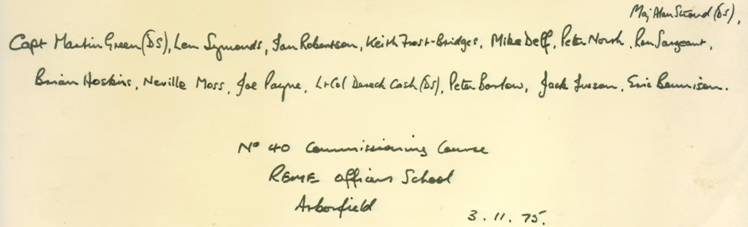 Maj Alan Stroud (DS),
Capt Martin Green (DS), Len Symonds, Ian Robertson, Keith Frost-Bridges, Mike Deff, Peter North, Ron Sargeant,
Brian Hoskins, Neville Moss, Joe Payne, Lt Col Dereck Cash (DS), Peter Barlow, Jack Eric Bennison.
No 40 Commissioning Course
REME Officers School
Arborfield
3.11.75.